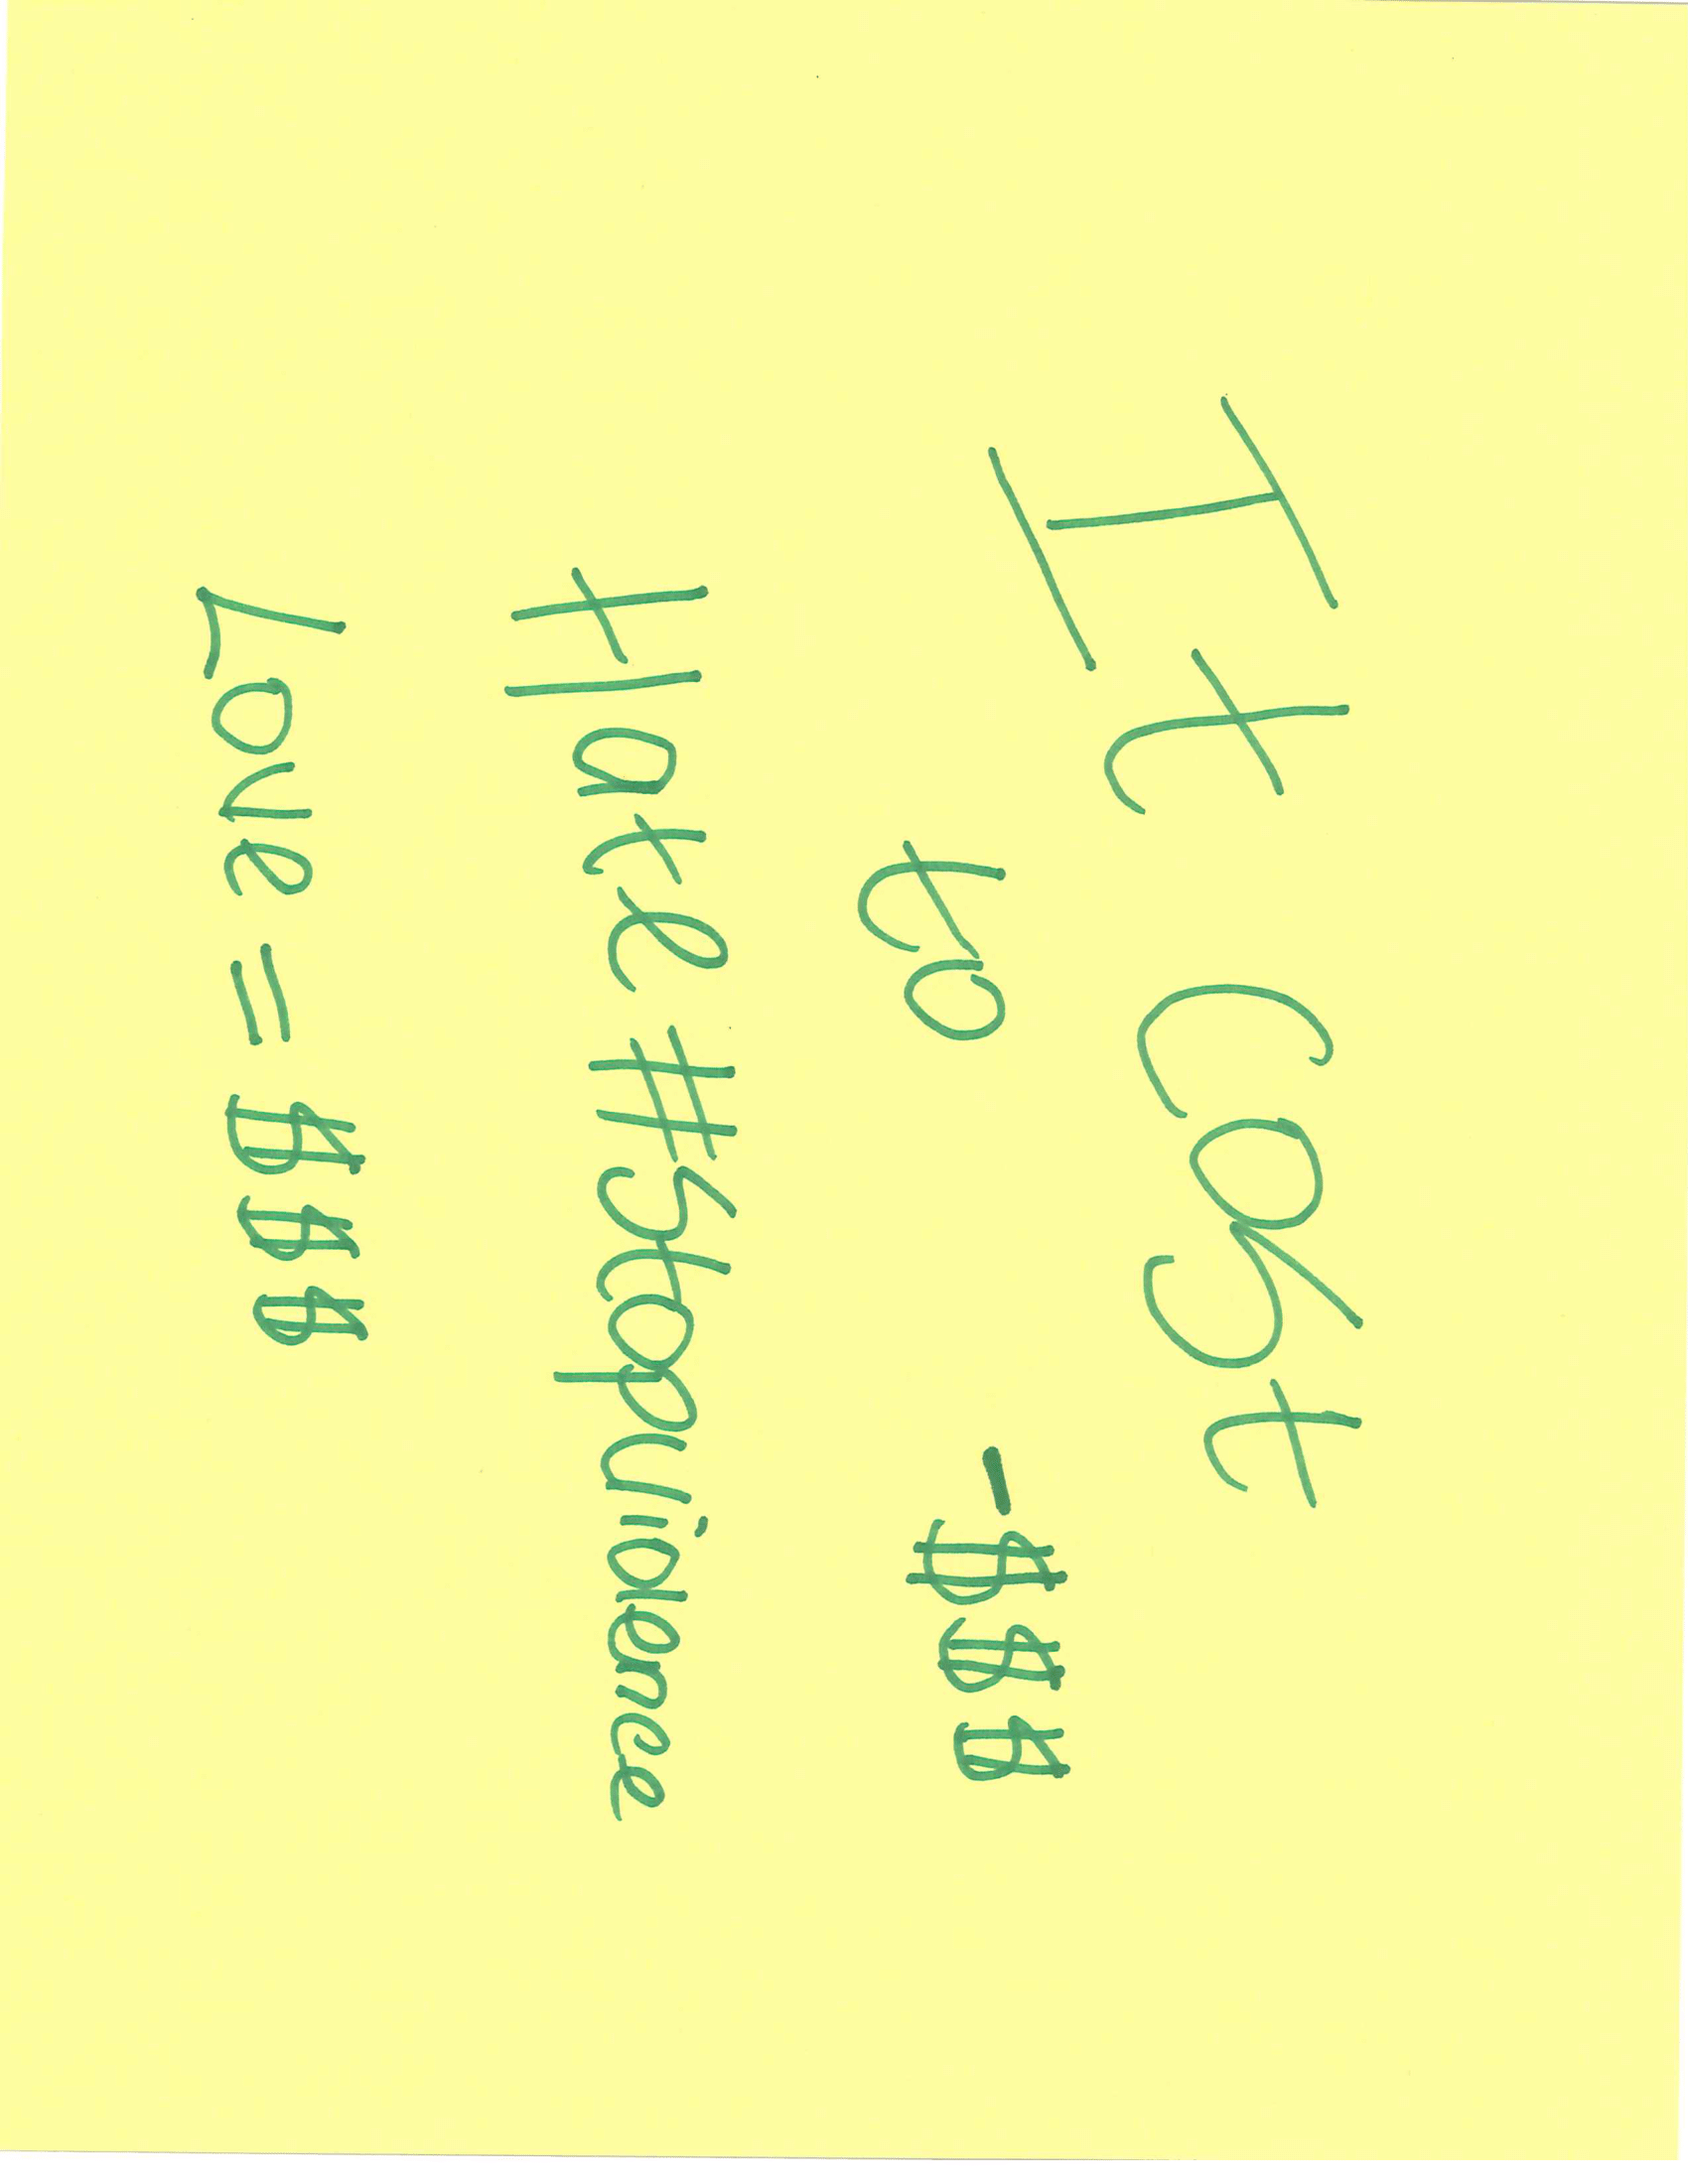 It Cost
to -$$$
Hate #Stopviolence
Love = $$$